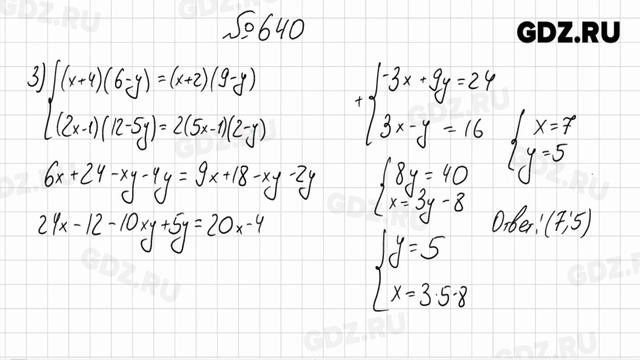 №640
GDZ.RU
3) { (x+4)(6-y)=(x+2)(9-y)
(2x-1)(12-5y)=2(5x-1)(2-y)
6x+24-xy-4y=9x+18-xy-2y
24x-12-10xy+5y=20x-4
+ { -3x+9y=24
3x-y=16
{ 8y=40
x=3y-8
{ y=5
x=3·5-8
{ x=7
y=5
Ответ: (7;5)